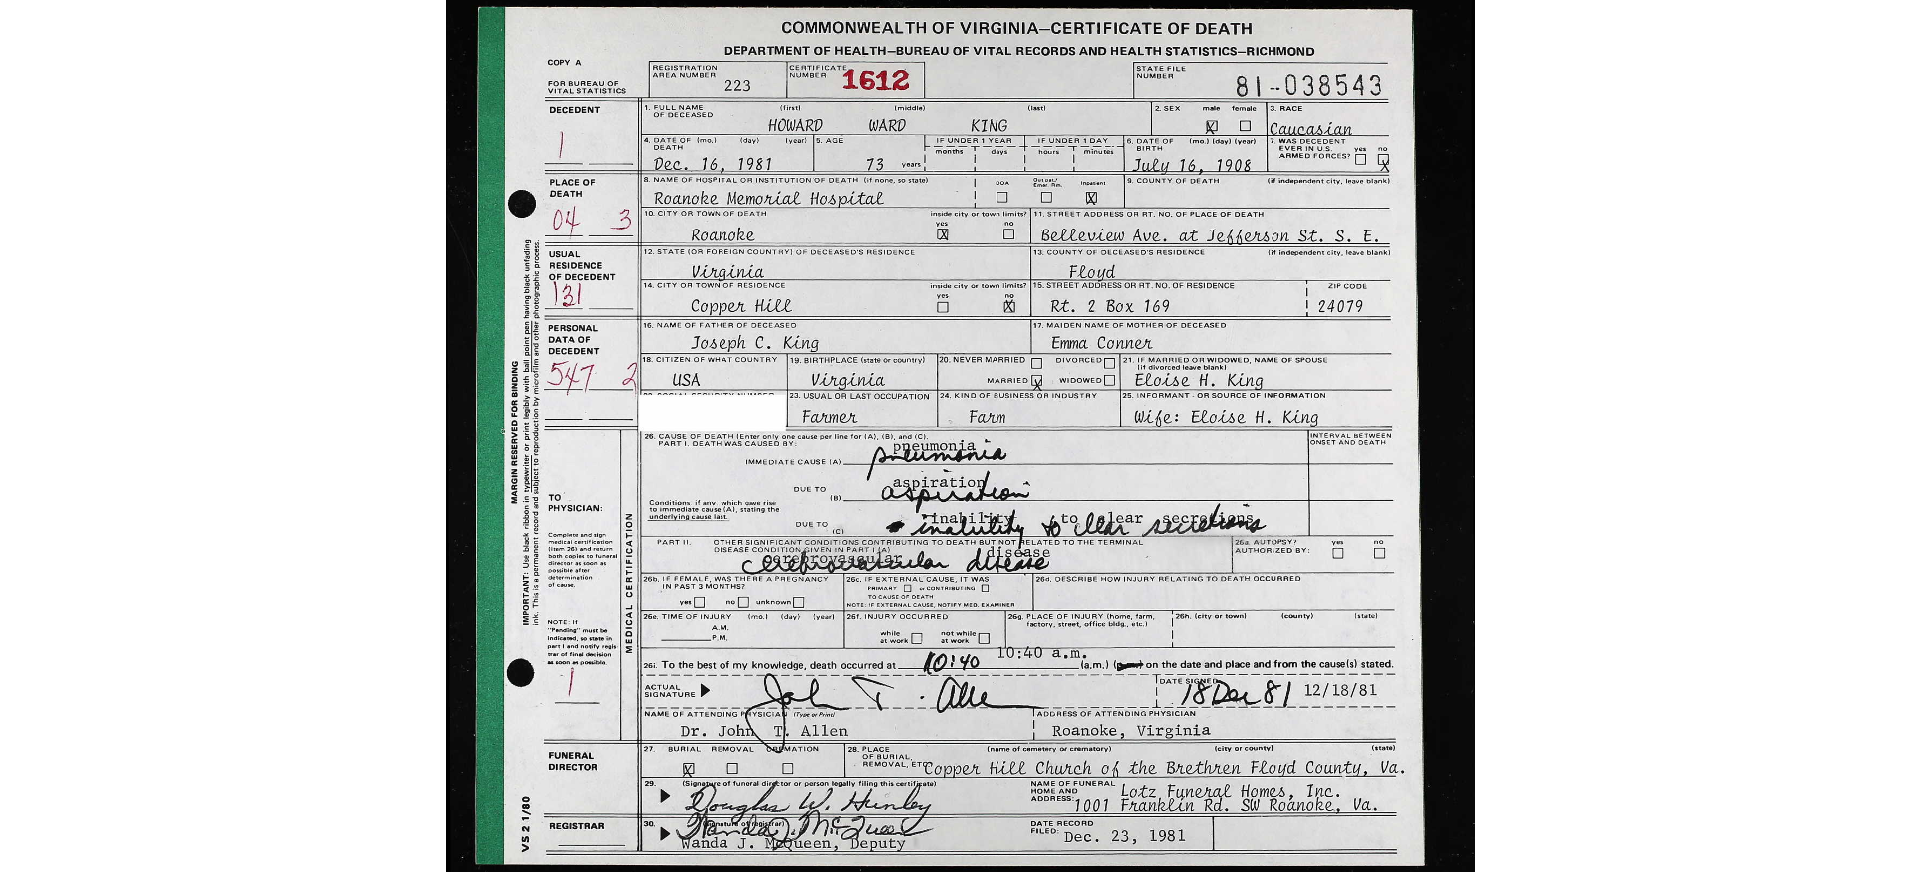 COMMONWEALTH OF VIRGINIA—CERTIFICATE OF DEATH
DEPARTMENT OF HEALTH—BUREAU OF VITAL RECORDS AND HEALTH STATISTICS—RICHMOND
COPY A
FOR BUREAU OF VITAL STATISTICS
REGISTRATION AREA NUMBER 223
CERTIFICATE NUMBER 1612
STATE FILE NUMBER 81-038543
DECEDENT
1
1. FULL NAME OF DECEASED (first) (middle) (last)
HOWARD WARD KING
2. SEX male female
X
3. RACE
Caucasian
4. DATE OF DEATH (mo.) (day) (year)
Dec. 16, 1981
5. AGE
73 years
IF UNDER 1 YEAR months days
IF UNDER 1 DAY hours minutes
6. DATE OF BIRTH (mo.) (day) (year)
July 16, 1908
7. WAS DECEDENT EVER IN U.S. ARMED FORCES? yes no
X
PLACE OF DEATH
04 3
8. NAME OF HOSPITAL OR INSTITUTION OF DEATH (if none, so state)
Roanoke Memorial Hospital
DOA Out pat./Emer. Rm. Inpatient
X
9. COUNTY OF DEATH (if independent city, leave blank)
10. CITY OR TOWN OF DEATH
Roanoke
inside city or town limits? yes no
X
11. STREET ADDRESS OR RT. NO. OF PLACE OF DEATH
Belleview Ave. at Jefferson St. S. E.
USUAL RESIDENCE OF DECEDENT
131
12. STATE (OR FOREIGN COUNTRY) OF DECEASED'S RESIDENCE
Virginia
13. COUNTY OF DECEASED'S RESIDENCE (if independent city, leave blank)
Floyd
14. CITY OR TOWN OF RESIDENCE
Copper Hill
inside city or town limits? yes no
X
15. STREET ADDRESS OR RT. NO. OF RESIDENCE
Rt. 2 Box 169
ZIP CODE
24079
PERSONAL DATA OF DECEDENT
547 2
16. NAME OF FATHER OF DECEASED
Joseph C. King
17. MAIDEN NAME OF MOTHER OF DECEASED
Emma Conner
18. CITIZEN OF WHAT COUNTRY
USA
19. BIRTHPLACE (state or country)
Virginia
20. NEVER MARRIED DIVORCED
MARRIED X WIDOWED
21. IF MARRIED OR WIDOWED, NAME OF SPOUSE (if divorced leave blank)
Eloise H. King
23. USUAL OR LAST OCCUPATION
Farmer
24. KIND OF BUSINESS OR INDUSTRY
Farm
25. INFORMANT - OR SOURCE OF INFORMATION
Wife: Eloise H. King
MARGIN RESERVED FOR BINDING
IMPORTANT: Use black ribbon in typewriter or print legibly with ball point pen having black unfading ink. This is a permanent record and subject to reproduction by microfilm and other photographic process.
TO PHYSICIAN:
Complete and sign medical certification (item 26) and return both copies to funeral director as soon as possible after determination of cause.
NOTE: If "Pending" must be indicated, so state in part I and notify registrar of final decision as soon as possible.
1
MEDICAL CERTIFICATION
26. CAUSE OF DEATH (Enter only one cause per line for (A), (B), and (C).
PART I. DEATH WAS CAUSED BY:
INTERVAL BETWEEN ONSET AND DEATH
pneumonia
IMMEDIATE CAUSE (A) pneumonia
aspiration
DUE TO (B) aspiration
Conditions if any, which gave rise to immediate cause (A), stating the underlying cause last.
inability to clear secretions
DUE TO (C) inability to clear secretions
PART II. OTHER SIGNIFICANT CONDITIONS CONTRIBUTING TO DEATH BUT NOT RELATED TO THE TERMINAL DISEASE CONDITION GIVEN IN PART I (A)
cerebrovascular disease
cerebrovascular disease
26a. AUTOPSY? AUTHORIZED BY: yes no
26b. IF FEMALE, WAS THERE A PREGNANCY IN PAST 3 MONTHS?
yes no unknown
26c. IF EXTERNAL CAUSE, IT WAS
PRIMARY or CONTRIBUTING
TO CAUSE OF DEATH
NOTE: IF EXTERNAL CAUSE, NOTIFY MED. EXAMINER
26d. DESCRIBE HOW INJURY RELATING TO DEATH OCCURRED
26e. TIME OF INJURY (mo.) (day) (year)
A.M.
P.M.
26f. INJURY OCCURRED
while at work not while at work
26g. PLACE OF INJURY (home, farm, factory, street, office bldg., etc.)
26h. (city or town) (county) (state)
10:40 a.m.
26i. To the best of my knowledge, death occurred at 10:40 (a.m.) on the date and place and from the cause(s) stated.
ACTUAL SIGNATURE John T. Allen
DATE SIGNED
18 Dec 81 12/18/81
NAME OF ATTENDING PHYSICIAN (Type or Print)
Dr. John T. Allen
ADDRESS OF ATTENDING PHYSICIAN
Roanoke, Virginia
FUNERAL DIRECTOR
27. BURIAL REMOVAL CREMATION
X
28. PLACE OF BURIAL, REMOVAL, ETC. (name of cemetery or crematory) (city or county) (state)
Copper Hill Church of the Brethren Floyd County, Va.
29. (Signature of funeral director or person legally filing this certificate)
Douglas W. Hunley
NAME OF FUNERAL HOME AND ADDRESS:
Lotz Funeral Homes, Inc.
1001 Franklin Rd. SW Roanoke, Va.
REGISTRAR
30. (Signature of registrar)
Wanda J. McQueen
Wanda J. McQueen, Deputy
DATE RECORD FILED:
Dec. 23, 1981
VS 2 1/80